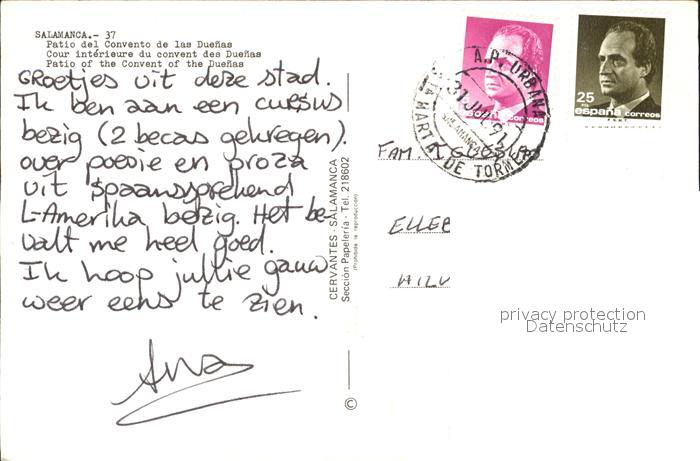 SALAMANCA.- 37
Patio del Convento de las Dueñas
Cour intérieure du convent des Dueñas
Patio of the Convent of the Dueñas
Groetjes uit deze stad.
Ik ben aan een cursus
bezig (2 becas gekregen).
over poesie en proza
uit spaanssprekend
L-Amerika bezig. Het be-
valt me heel goed.
Ik hoop jullie gauw
weer eens te zien.
Ana
CERVANTES - SALAMANCA
Sección Papelería - Tel. 218602
(Prohibida la reproducción)
©
A.P. URBANA
31 JUL 97
SALAMANCA
MARTA DE TORMES
españa correos
25
españa correos
FAM.
privacy protection
Datenschutz